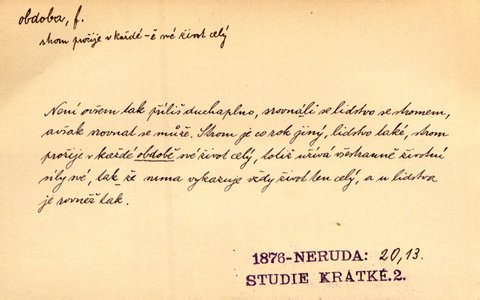 obdoba, f.
strom prožije v každé -ě své život celý
Není ovšem tak příliš duchaplno, srovnáli se lidstvo se stromem,
avšak srovnat se může. Strom je co rok jiný, lidstvo také, strom
prožije v každé obdobě své život celý, totiž užívá všestranně životní
síly své, tak že nima vykazuje vždy život ten celý, a u lidstva
je rovněž tak.
1876-NERUDA: 20,13.
STUDIE KRÁTKÉ.2.